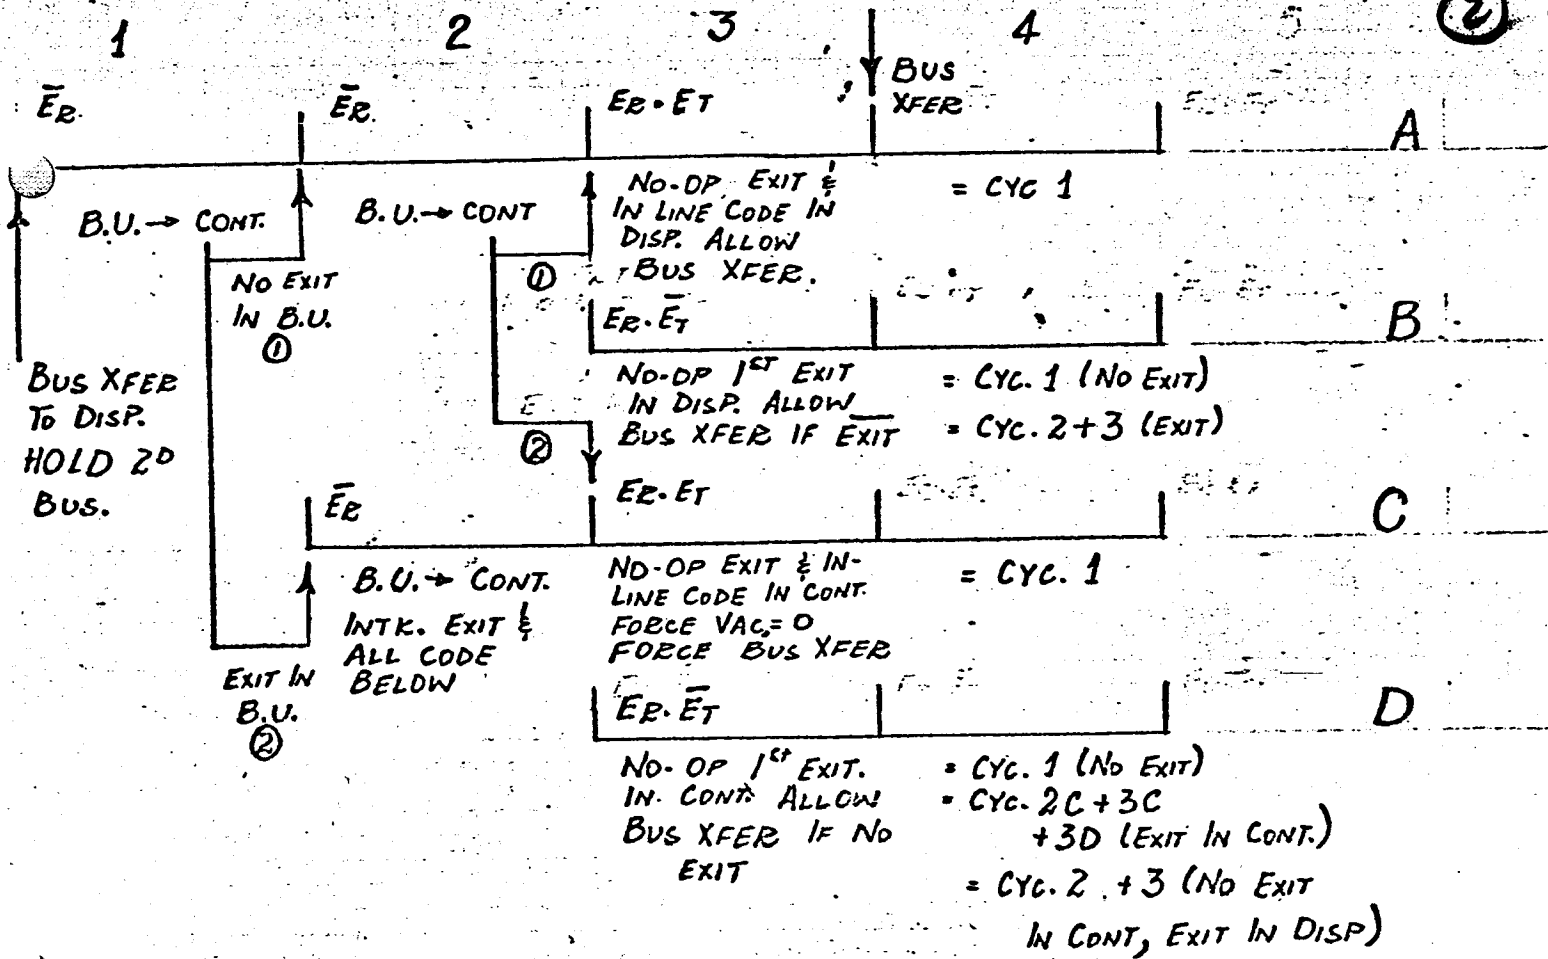 1 2 3 4 2
E̅R. E̅R. ER·ET BUS
XFER
A
B.U.→ CONT.
B.U.→ CONT
NO-OP EXIT &
IN LINE CODE IN
DISP. ALLOW
BUS XFER.
= CYC 1
NO EXIT
IN B.U.
①
①
ER·E̅T
B
BUS XFER
TO DISP.
HOLD 2D
BUS.
NO-OP 1ST EXIT
IN DISP. ALLOW
BUS XFER IF E̅X̅I̅T̅
= CYC. 1 (NO EXIT)
= CYC. 2+3 (EXIT)
②
E̅R
ER·ET
C
B.U.→ CONT.
INTK. EXIT &
ALL CODE
BELOW
NO-OP EXIT & IN-
LINE CODE IN CONT.
FORCE VAC.=0
FORCE BUS XFER
= CYC. 1
EXIT IN
B.U.
②
ER·E̅T
D
NO-OP 1ST EXIT.
IN CONT. ALLOW
BUS XFER IF NO
EXIT
= CYC. 1 (NO EXIT)
= CYC. 2C+3C
+3D (EXIT IN CONT.)
= CYC. 2 .+3 (NO EXIT
IN CONT, EXIT IN DISP)